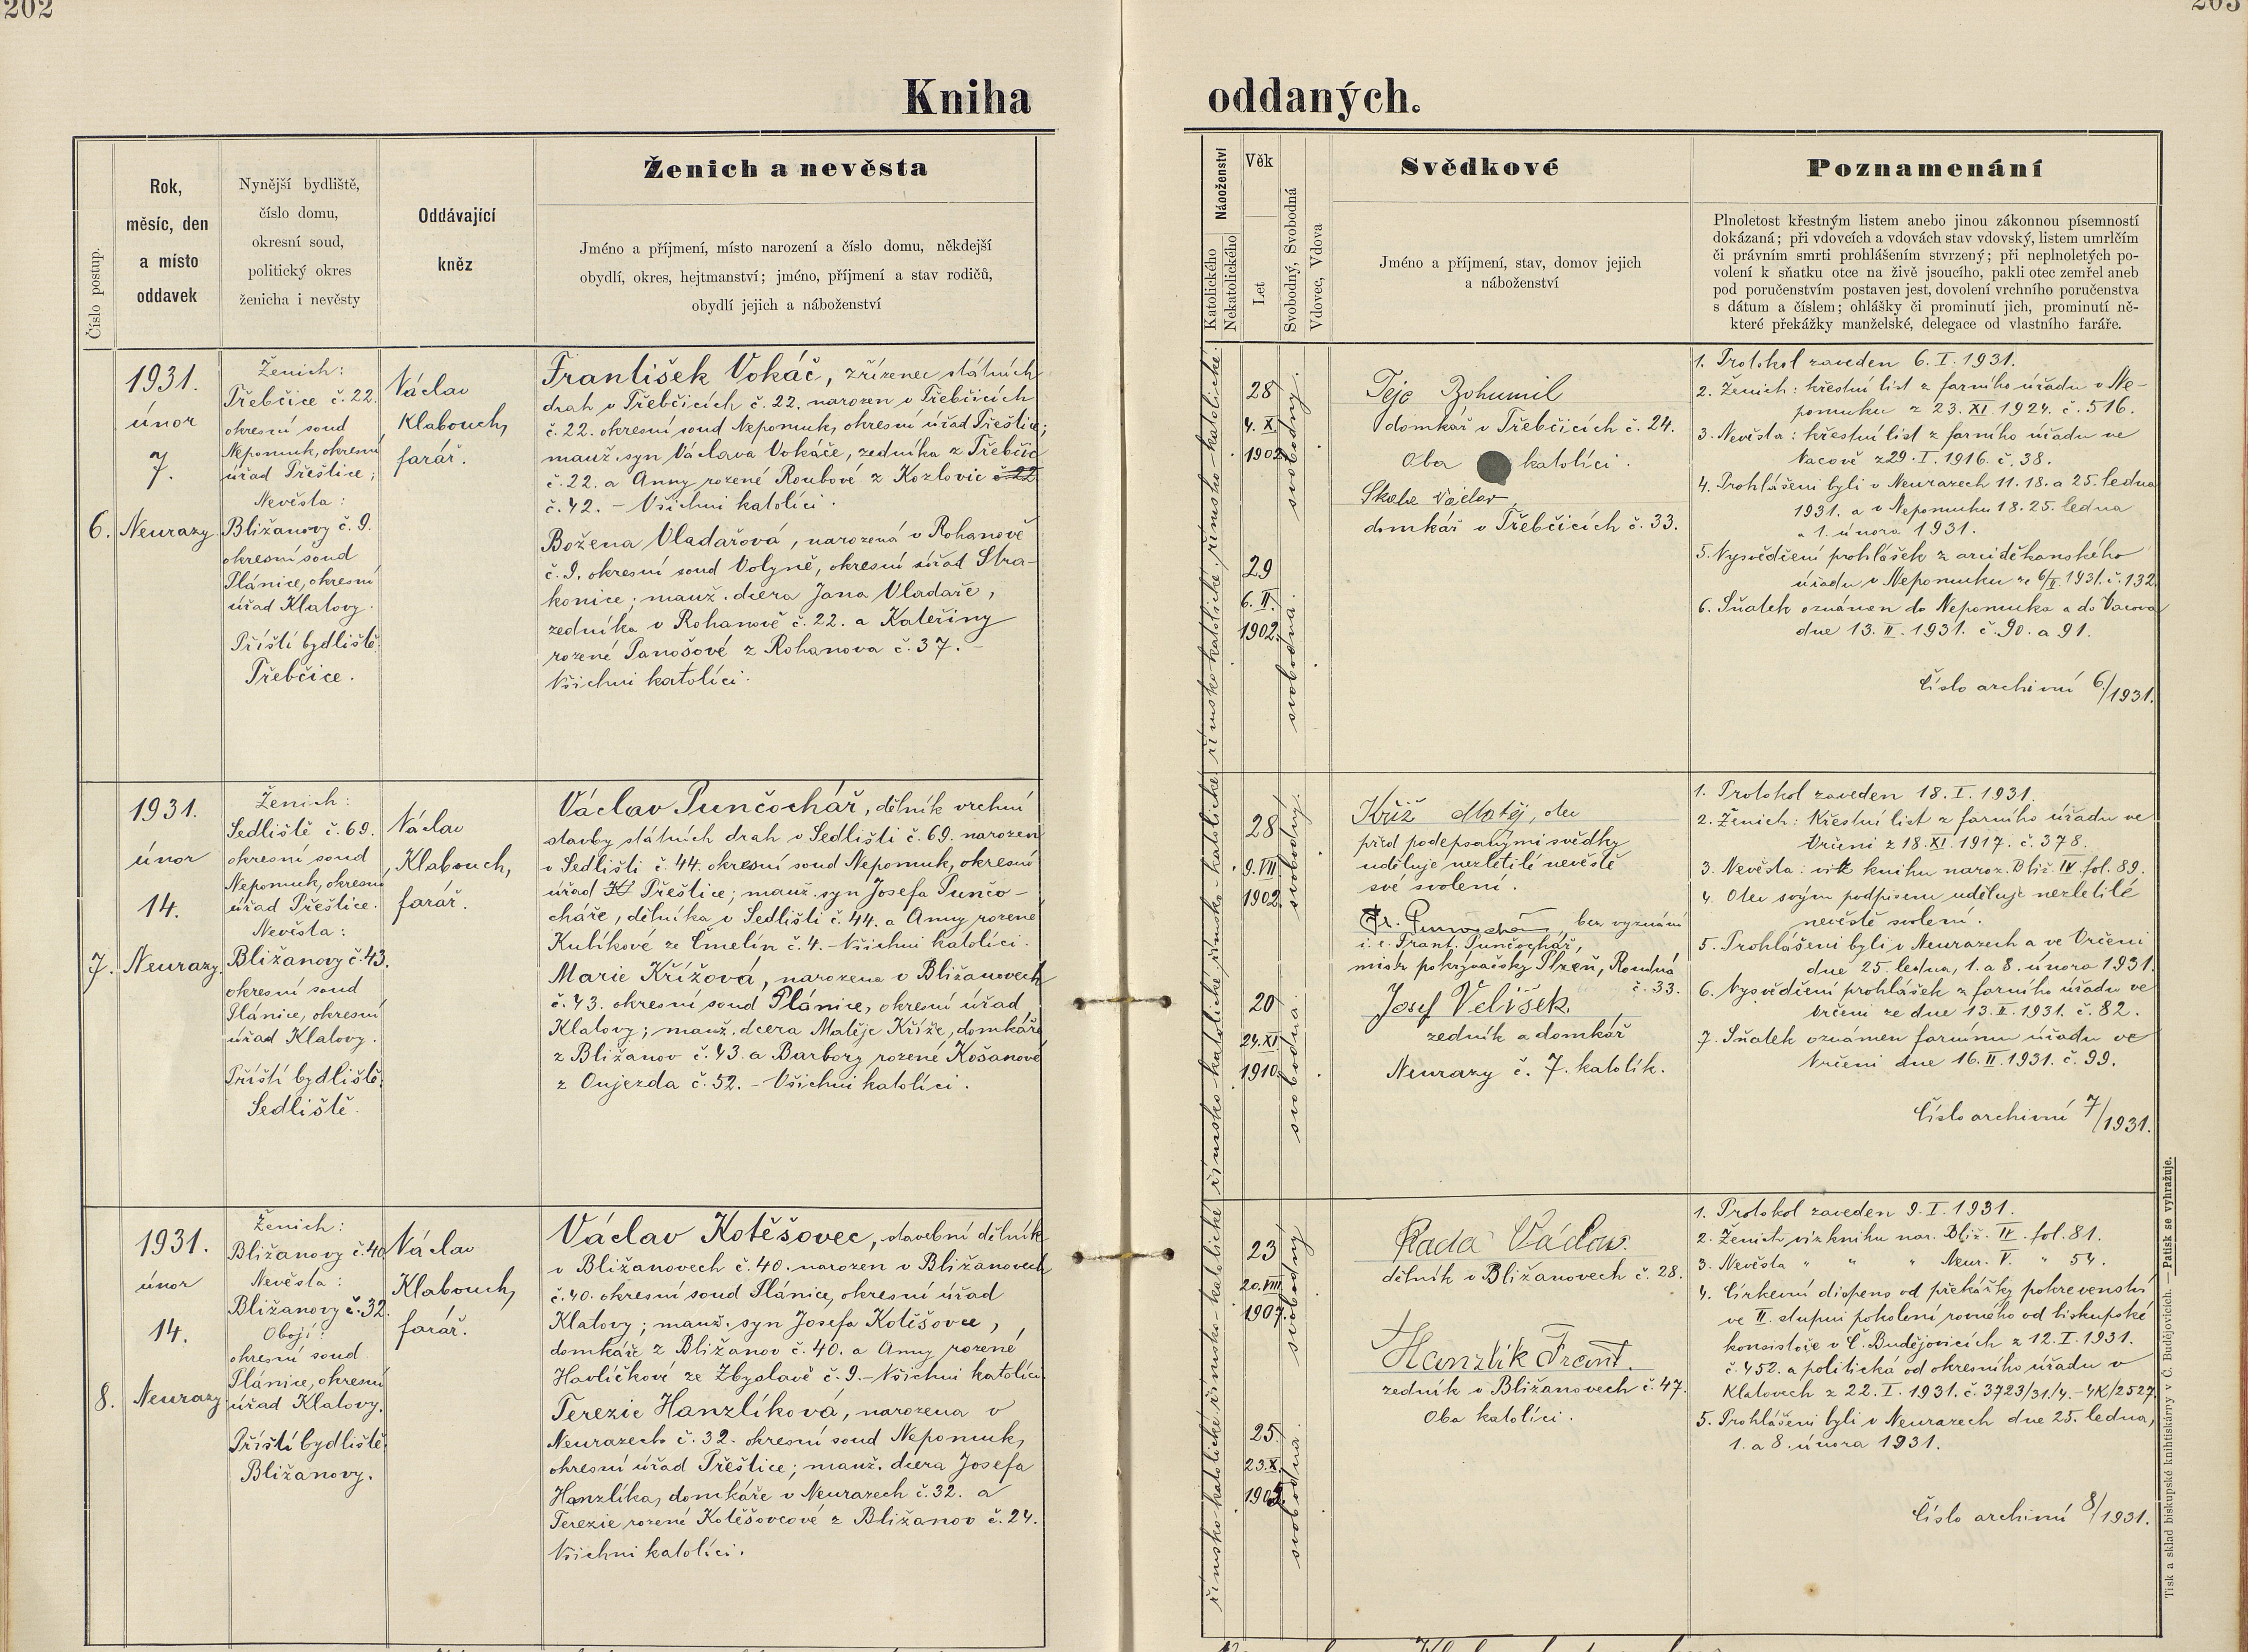 202
Kniha
Číslo postup.
Rok,
měsíc, den
a místo
oddavek
Nynější bydliště,
číslo domu,
okresní soud,
politický okres
ženicha i nevěsty
Oddávající
kněz
Ženich a nevěsta
Jméno a příjmení, místo narození a číslo domu, někdejší
obydlí, okres, hejtmanství; jméno, příjmení a stav rodičů,
obydlí jejich a náboženství
6.
1931.
únor
7.
Neurazy
Ženich:
Třebčice č. 22.
okresní soud
Nepomuk, okresní
úřad Přeštice;
Nevěsta:
Bližanovy č. 9.
okresní soud
Plánice, okresní
úřad Klatovy.
Příští bydliště:
Třebčice.
Václav
Klabouch,
farář.
František Vokáč, zřízenec státních
drah v Třebčicích č. 22. narozen v Třebčicích
č. 22. okresní soud Nepomuk, okresní úřad Přeštice;
manž. syn Václava Vokáče, zedníka z Třebčic
č. 22. a Anny rozené Roubové z Kozlovic č 22
č. 42. – Všichni katolíci.
Božena Vladařová, narozená v Rohanově
č. 9. okresní soud Volyně, okresní úřad Stra-
konice; manž. dcera Jana Vladaře,
zedníka v Rohanově č. 22. a Kateřiny
rozené Panošové z Rohanova č. 37. –
Všichni katolíci.
7.
1931.
únor
14.
Neurazy.
Ženich:
Sedliště č. 69.
okresní soud
Nepomuk, okresní
úřad Přeštice.
Nevěsta:
Bližanovy č. 43.
okresní soud
Plánice, okresní
úřad Klatovy.
Příští bydliště:
Sedliště.
Václav
Klabouch,
farář.
Václav Punčochář, dělník vrchní
stavby státních drah v Sedlišti č. 69. narozen
v Sedlišti č. 44. okresní soud Nepomuk, okresní
úřad Kl Přeštice; manž. syn Josefa Punčo-
cháře, dělníka v Sedlišti č. 44. a Anny rozené
Kubíkové ze Čmelín č. 4. – Všichni katolíci.
Marie Křížová, narozena v Bližanovech
č. 43. okresní soud Plánice, okresní úřad
Klatovy; manž. dcera Matěje Kříže, domkáře
z Bližanov č. 43. a Barbory rozené Košanové
z Oujezda č. 52. – Všichni katolíci.
8.
1931.
únor
14.
Neurazy
Ženich:
Bližanovy č. 40
Nevěsta:
Bližanovy č. 32.
Obojí:
okresní soud
Plánice, okresní
úřad Klatovy.
Příští bydliště:
Bližanovy.
Václav
Klabouch,
farář.
Václav Kotěšovec, stavební dělník
v Bližanovech č. 40. narozen v Bližanovech
č. 40. okresní soud Plánice, okresní úřad
Klatovy; manž. syn Josefa Kotěšovce,
domkáře z Bližanov č. 40. a Anny rozené
Havlíčkové ze Zbyslavě č. 9. – Všichni katolíci
Terezie Hanzlíková, narozena v
Neurazech č. 32. okresní soud Nepomuk,
okresní úřad Přeštice; manž. dcera Josefa
Hanzlíka, domkáře v Neurazech č. 32. a
Terezie rozené Kotěšovcové z Bližanov č. 24.
Všichni katolíci.
203
oddaných.
Náboženství
Katolického
Nekatolického
Věk
Let
Svobodný, Svobodná
Vdovec, Vdova
Svědkové
Jméno a příjmení, stav, domov jejich
a náboženství
Poznamenání
Plnoletost křestným listem anebo jinou zákonnou písemností
dokázaná; při vdovcích a vdovách stav vdovský, listem umrlčím
či právním smrti prohlášením stvrzený; při neplnoletých po-
volení k sňatku otce na živě jsoucího, pakli otec zemřel aneb
pod poručenstvím postaven jest, dovolení vrchního poručenstva
s dátum a číslem; ohlášky či prominutí jich, prominutí ně-
které překážky manželské, delegace od vlastního faráře.
římsko-katolické.
římsko-katolické.
28
4. X.
1902.
svobodný.
29
6. II.
1902.
svobodná.
Tejc Bohumil
domkář v Třebčicích č. 24.
Oba katolíci.
Skala Václav
domkář v Třebčicích č. 33.
1. Protokol zaveden 6. I. 1931.
2. Ženich: křestní list z farního úřadu v Ne-
pomuku z 23. XI. 1924. č. 516.
3. Nevěsta: křestní list z farního úřadu ve
Vacově z 29. I. 1916. č. 38.
4. Prohlášeni byli v Neurazech 11. 18. a 25. ledna
1931. a v Nepomuku 18. 25. ledna
a 1. února 1931.
5. Vysvědčení prohlášek z arciděkanského
úřadu v Nepomuku ze 6/II 1931. č. 132
6. Sňatek oznámen do Nepomuka a do Vacova
dne 13. II. 1931. č. 90. a 91.
Číslo archivní 6/1931.
římsko-katolické
římsko-katolické
28
9. VII.
1902.
svobodný.
20
24. XI.
1910.
svobodná.
Kříž Matěj, otec
před podepsanými svědky
uděluje nezletilé nevěstě
své svolení.
Fr. Punčochář bez vyznání
t. č. Frant. Punčochář,
mistr pokrývačský Plzeň, Roudná
č. 33.
Josef Velíšek
zedník a domkář
Neurazy č. 7. katolík.
1. Protokol zaveden 18. I. 1931.
2. Ženich: Křestní list z farního úřadu ve
Vrčeni z 18. XI. 1917. č. 378.
3. Nevěsta: viz knihu naroz. Bliž. IV. fol. 89.
4. Otec svým podpisem uděluje nezletilé
nevěstě svolení.
5. Prohlášeni byli v Neurazech a ve Vrčeni
dne 25. ledna, 1. a 8. února 1931.
6. Vysvědčení prohlášek z farního úřadu ve
Vrčeni ze dne 13. II. 1931. č. 82.
7. Sňatek oznámen farnímu úřadu ve
Vrčeni dne 16. II. 1931. č. 99.
Číslo archivní 7/1931.
římsko-katolické
římsko-katolické
23
20. VIII.
1907.
svobodný
25
23. X.
1905.
svobodná.
Rada Václav.
dělník v Bližanovech č. 28.
Hanzlík Frant.
zedník v Bližanovech č. 47.
Oba katolíci.
1. Protokol zaveden 9. I. 1931.
2. Ženich viz knihu nar. Bliž. IV. fol. 81.
3. Nevěsta " " " Neur. V. " 54.
4. Církevní dispens od překážky pokrevenství
ve II. stupni pokolení rovného od biskupské
konsistoře v Č. Budějovicích z 12. I. 1931.
č. 452. a politická od okresního úřadu v
Klatovech z 22. I. 1931. č. 3723/31/4. – 4K/2527
5. Prohlášeni byli v Neurazech dne 25. ledna,
1. a 8. února 1931.
Číslo archivní 8/1931.
Tisk a sklad biskupské knihtiskárny v Č. Budějovicích. — Patisk se vyhražuje.